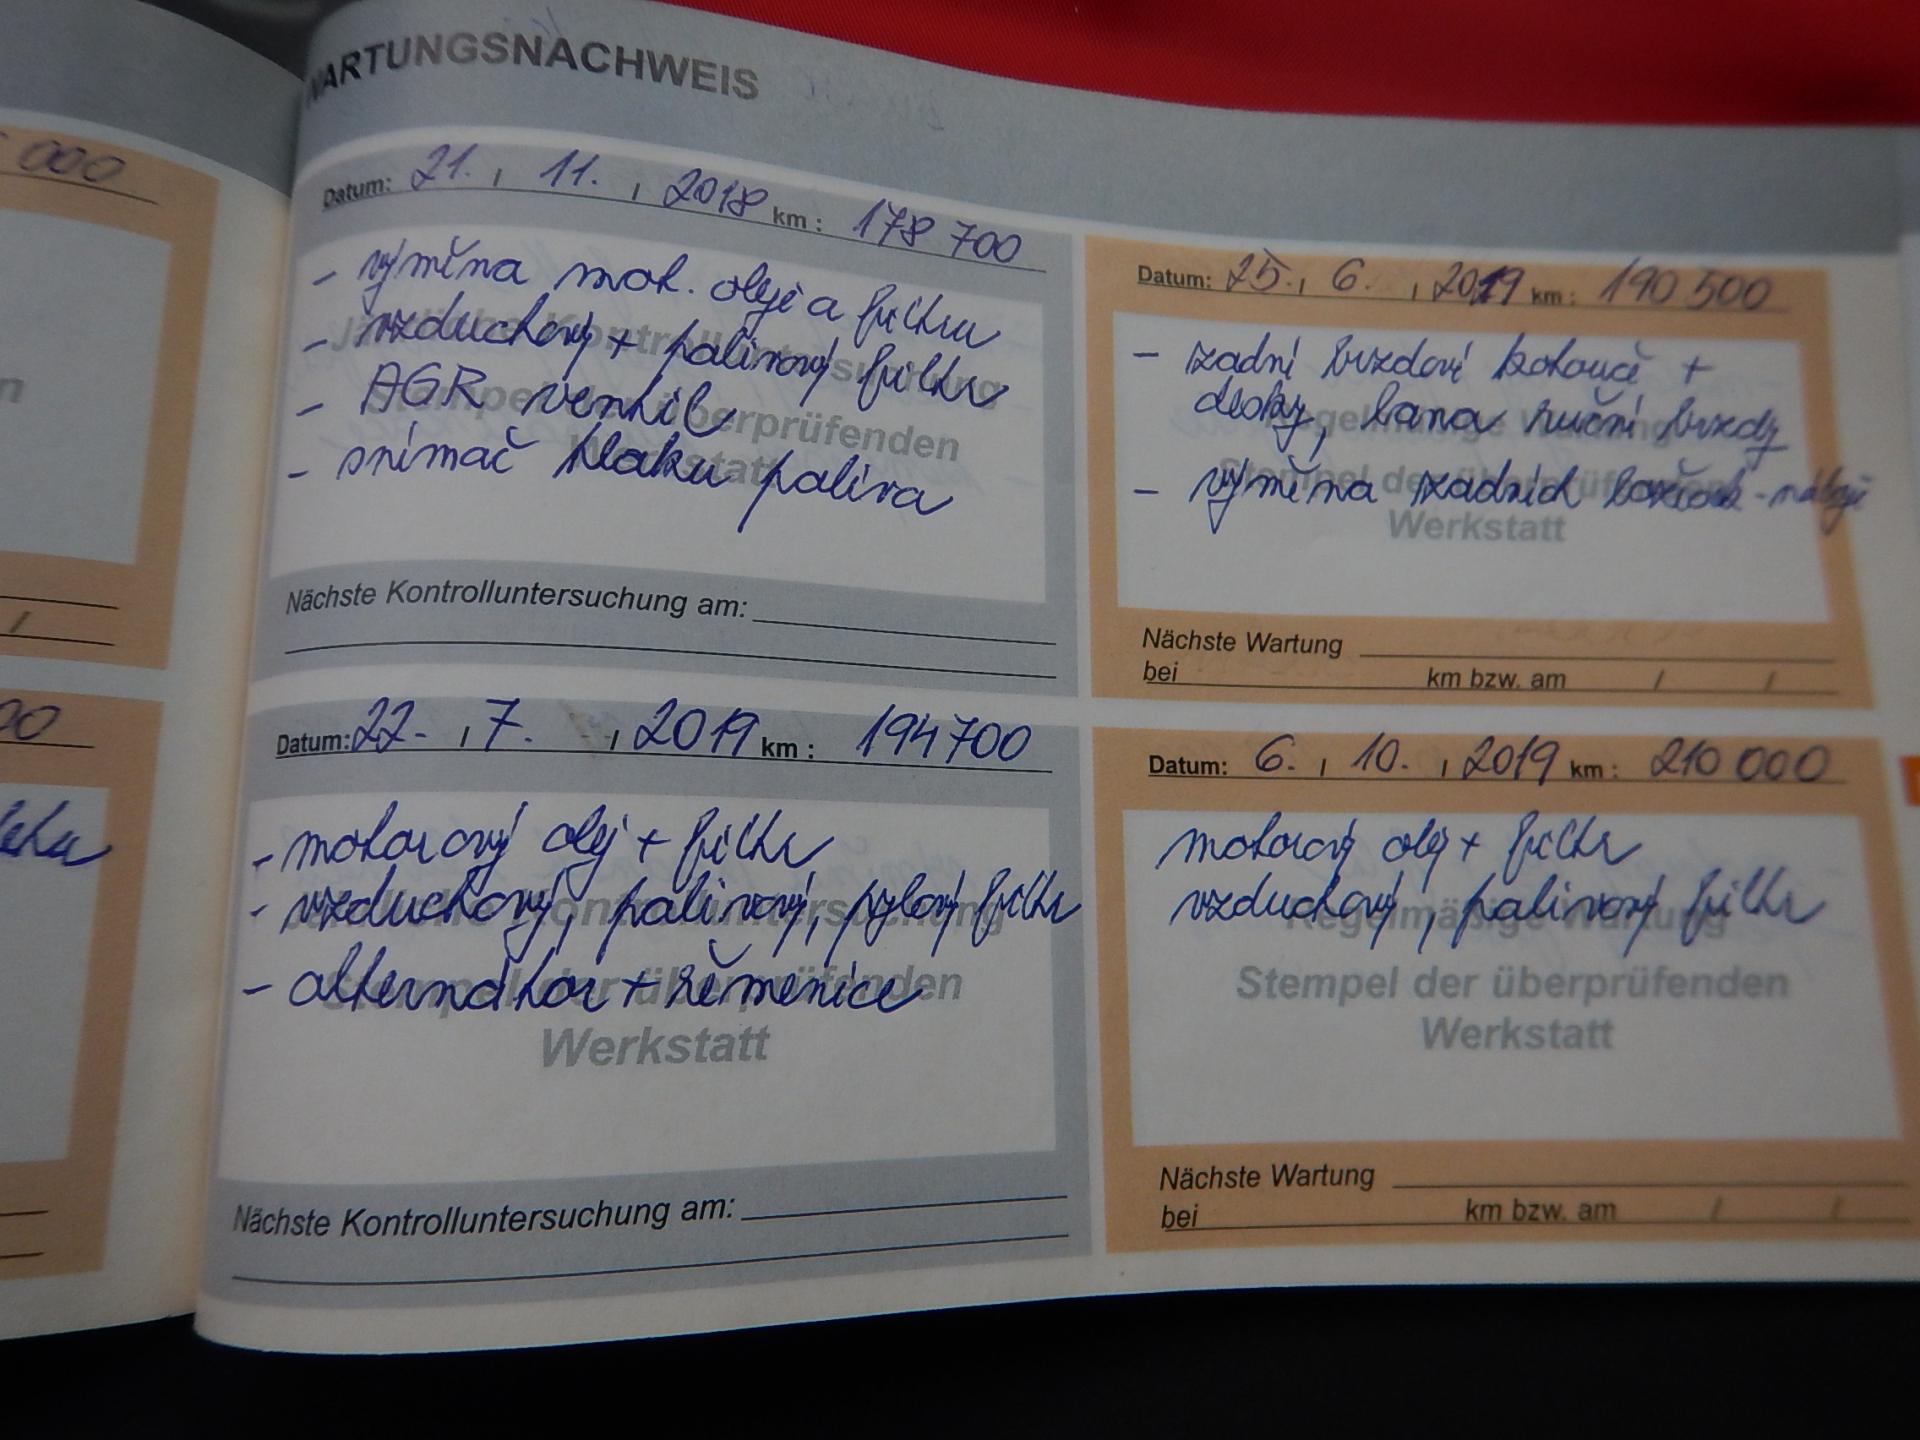 000
n
/
00
WARTUNGSNACHWEIS
Datum: 21. / 11. / 2018 km: 178 700
- výměna mot. oleje a filtru
- vzduchový + palivový filtr
- AGR ventil
- snímač tlaku paliva
Jährliche Kontrolluntersuchung
Stempel der überprüfenden
Werkstatt
Nächste Kontrolluntersuchung am:
Datum: 25. / 6. / 2019 km: 190 500
- zadní brzdové kotouče +
desky, lana ruční brzdy
- výměna zadních ložisek - náboje
Regelmäßige Wartung
Stempel der überprüfenden
Werkstatt
Nächste Wartung
bei km bzw. am / /
Datum: 22. / 7. / 2019 km: 194 700
- motorový olej + filtr
- vzduchový, palivový, pylový filtr
- alternátor + řemenice
Jährliche Kontrolluntersuchung
Stempel der überprüfenden
Werkstatt
Nächste Kontrolluntersuchung am:
Datum: 6. / 10. / 2019 km: 210 000
motorový olej + filtr
vzduchový, palivový filtr
Regelmäßige Wartung
Stempel der überprüfenden
Werkstatt
Nächste Wartung
bei km bzw. am / /